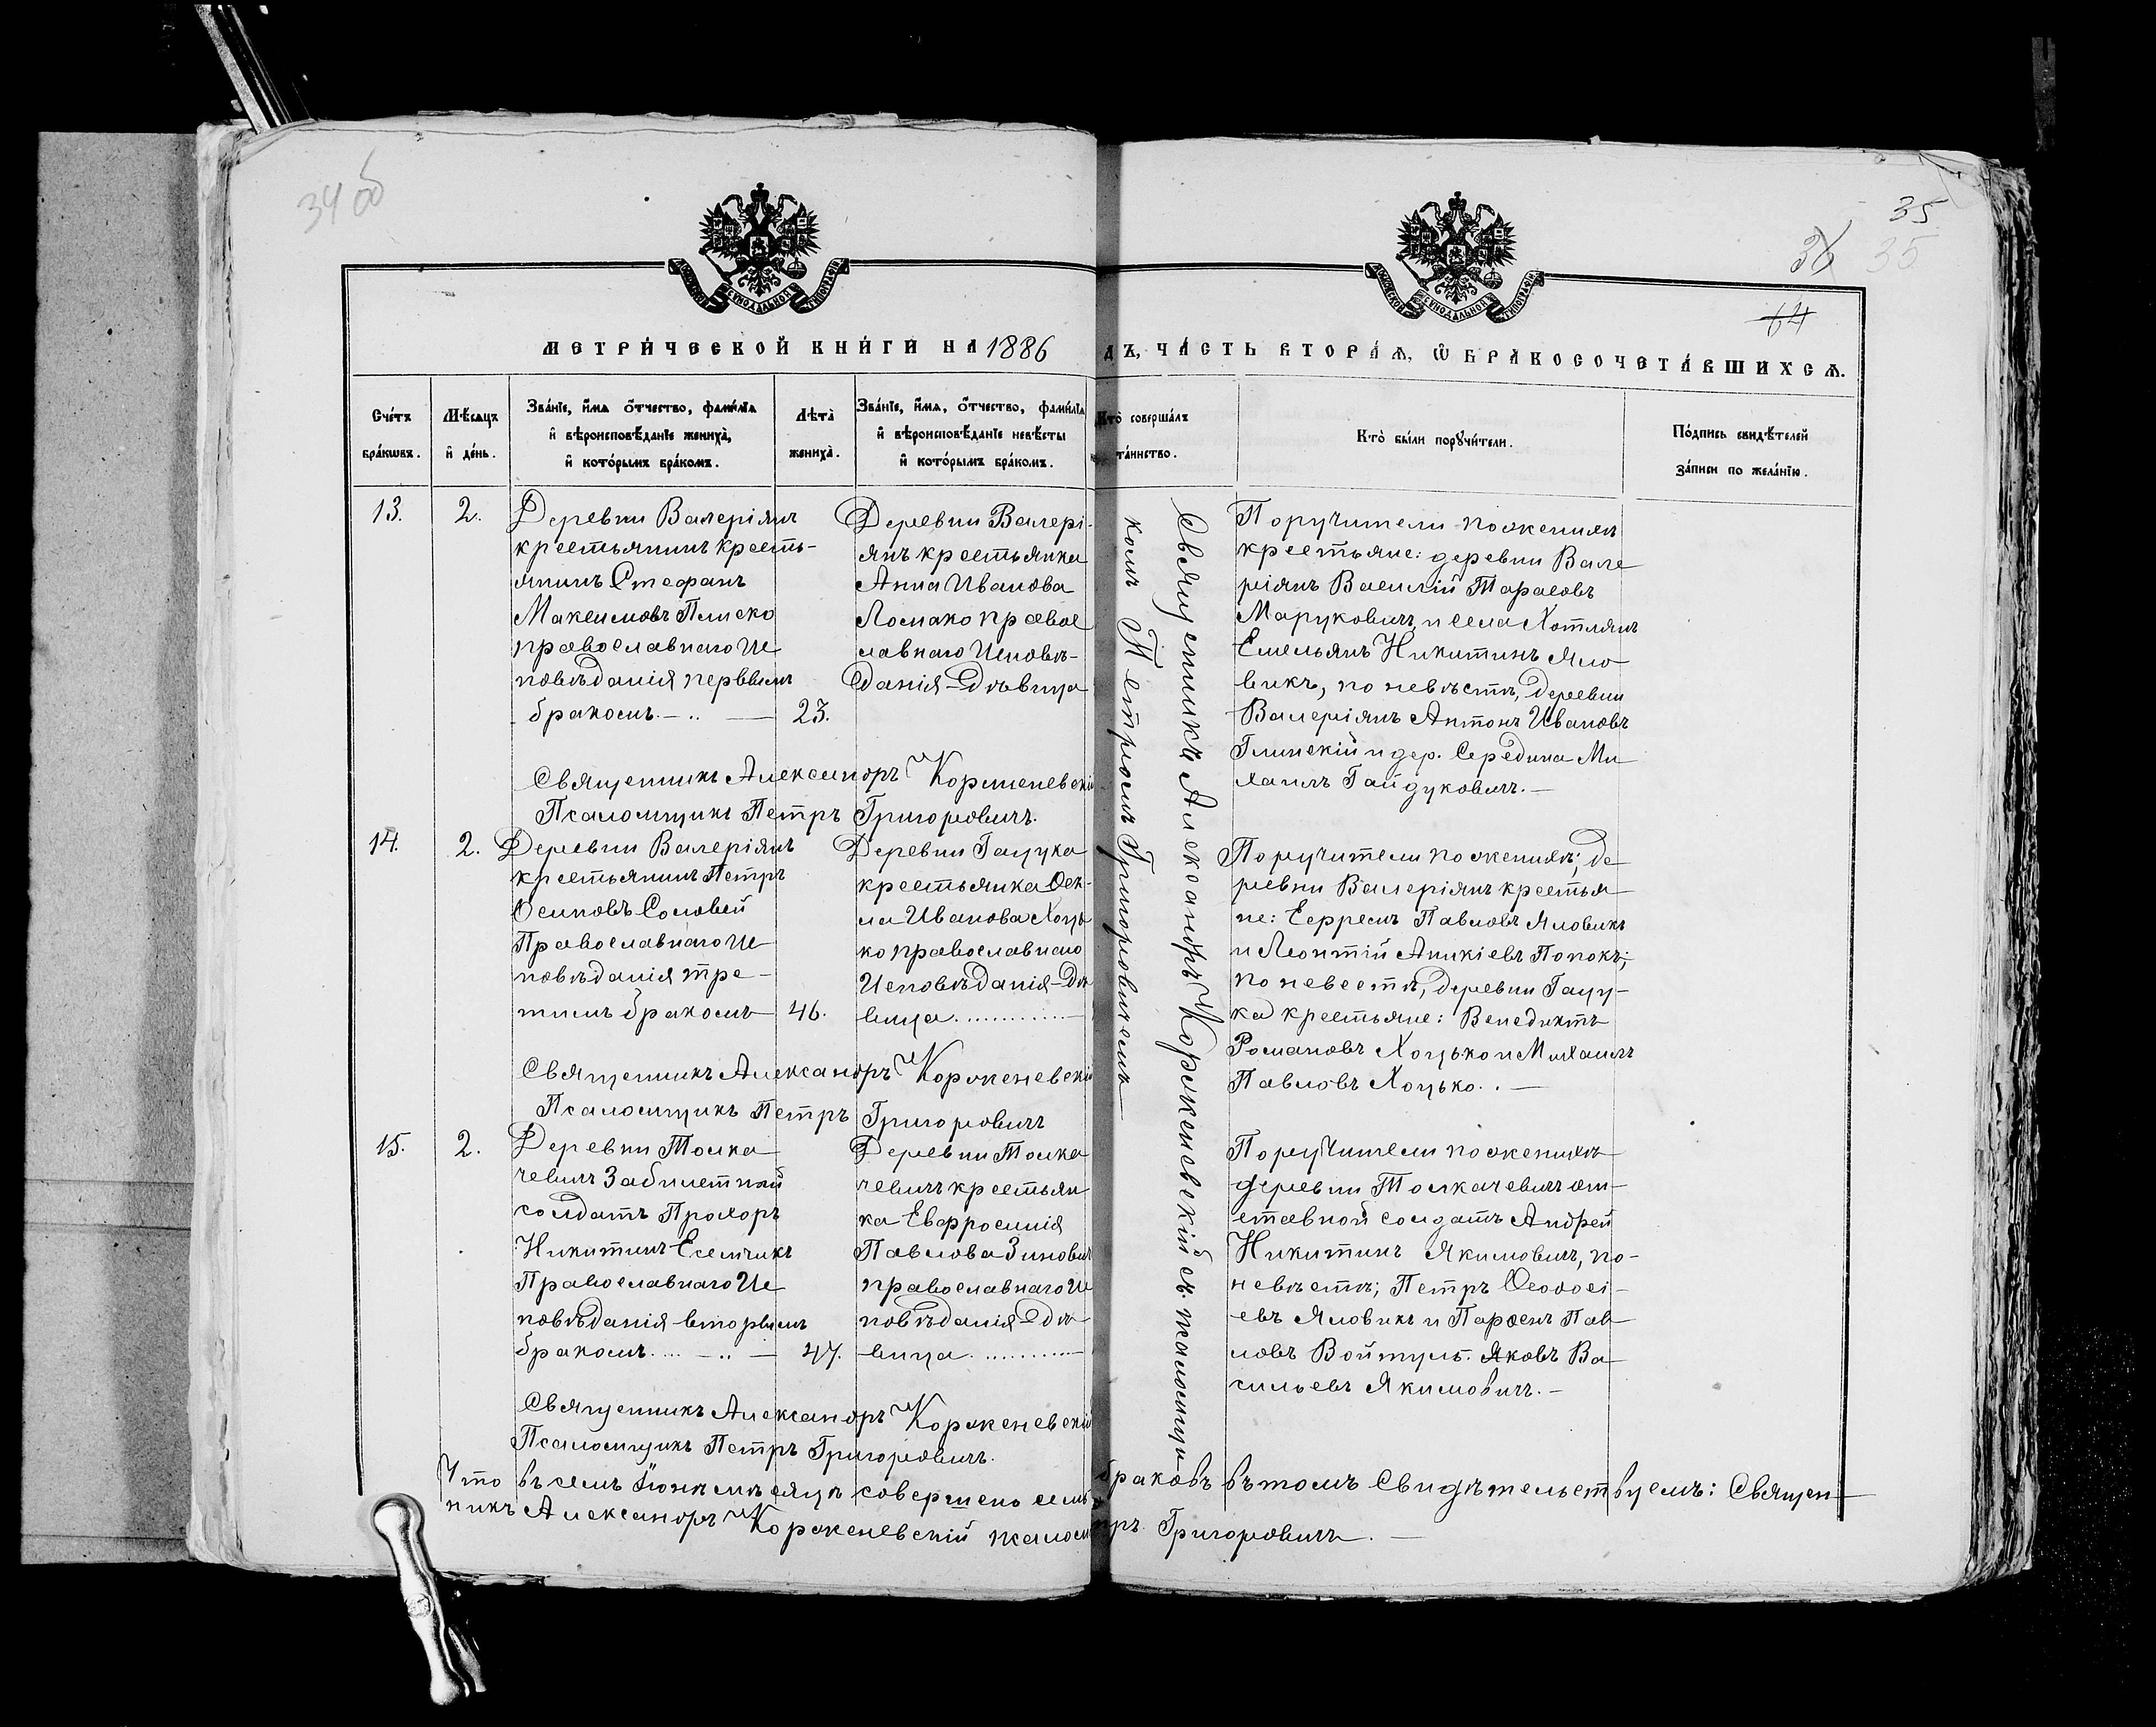 34 об
35
36 35
64
МЕТРИЧЕСКОЙ КНИГИ НА 1886
ДЪ, ЧАСТЬ ВТОРАЯ, Ѿ БРАКОСОЧЕТАВШИХСЯ.
Счетъ браковъ.
Мѣсяцъ и день.
Званіе, имя, отчество, фамилія
и вѣроисповѣданіе жениха,
и которымъ бракомъ.
Лѣта
жениха.
Званіе, имя, отчество, фамилія
и вѣроисповѣданіе невѣсты
и которымъ бракомъ.
Кто совершалъ
таинство.
Кто были поручители.
Подпись свидѣтелей
записи по желанію.
13.
2.
Деревни Валеріянъ
крестьянинъ кресть-
янинъ Стефанъ
Максимовъ
православнаго Ис
повѣданія первымъ
бракомъ. — .. —
23.
Деревни Валері-
янъ крестьянка
Анна Иванова
Ломако правос
лавнаго Исповѣ-
данія - Дѣвица
Поручители по женихѣ
крестьяне: деревни Вале
ріянъ Василій Тарасовъ
Маруковичъ и села Хотлянъ
Емельянъ Никитинъ Яло
викъ, по невѣстѣ, деревни
Валеріянъ Антонъ Ивановъ
Глинскій и дер. Середина Ми
хаилъ Гайдуковичъ. —
Священникъ Александръ Корженевскій
Псаломщикъ Петръ Григоровичъ.
14.
2.
Деревни Валеріянъ
крестьянинъ Петръ
Осиповъ Соловей
Православнаго Ис
повѣданія тре-
тимъ бракомъ
46.
Деревни Гацука
крестьянка Ѳек-
ла Иванова Хоць
ко православнаго
Исповѣданія - Дѣ
вица. ...........
Поручители по женихѣ; де
ревни Валеріянъ крестья
не: Ефремъ Павловъ Яловикъ
и Леонтій Аникіевъ Попокъ;
по невестѣ, деревни Гацу-
ка крестьяне: Венедиктъ
Романовъ Хоцько и Михаилъ
Павловъ Хоцько. . —
Священникъ Александръ Корженевскій
Псаломщикъ Петръ Григоровичъ
15.
2.
Деревни Толка
чевичъ Забилетный
солдатъ Прохоръ
Никитинъ
Православнаго Ис
повѣданія вторымъ
бракомъ. ... — .. —
47.
Деревни Толка
чевичъ крестьян
ка Евфросинія
Павлова Зиновичъ
православнаго Ис
повѣданія - Дѣ
вица. ..........
Поручители по женихѣ
деревни Толкачевичъ от-
ставной солдатъ Андрей
Никитинъ Якимовичъ, по-
невѣстѣ; Петръ Ѳеодосі-
евъ Яловикъ и Парѳенъ Пав
ловъ Войтуль. Яковъ Ва
сильевъ Якимовичъ. —
Священникъ Александръ Корженевскій
Псаломщикъ Петръ Григоровичъ.
Священникъ Александръ Корженевскій съ псаломщи-
комъ Петромъ Григоровичемъ
Что въ семъ Іюнѣ мѣсяцѣ совершено семь браковъ въ томъ Свидѣтельствуемъ: Священ
никъ Александръ Корженевскій псалом тръ Григоровичъ. —